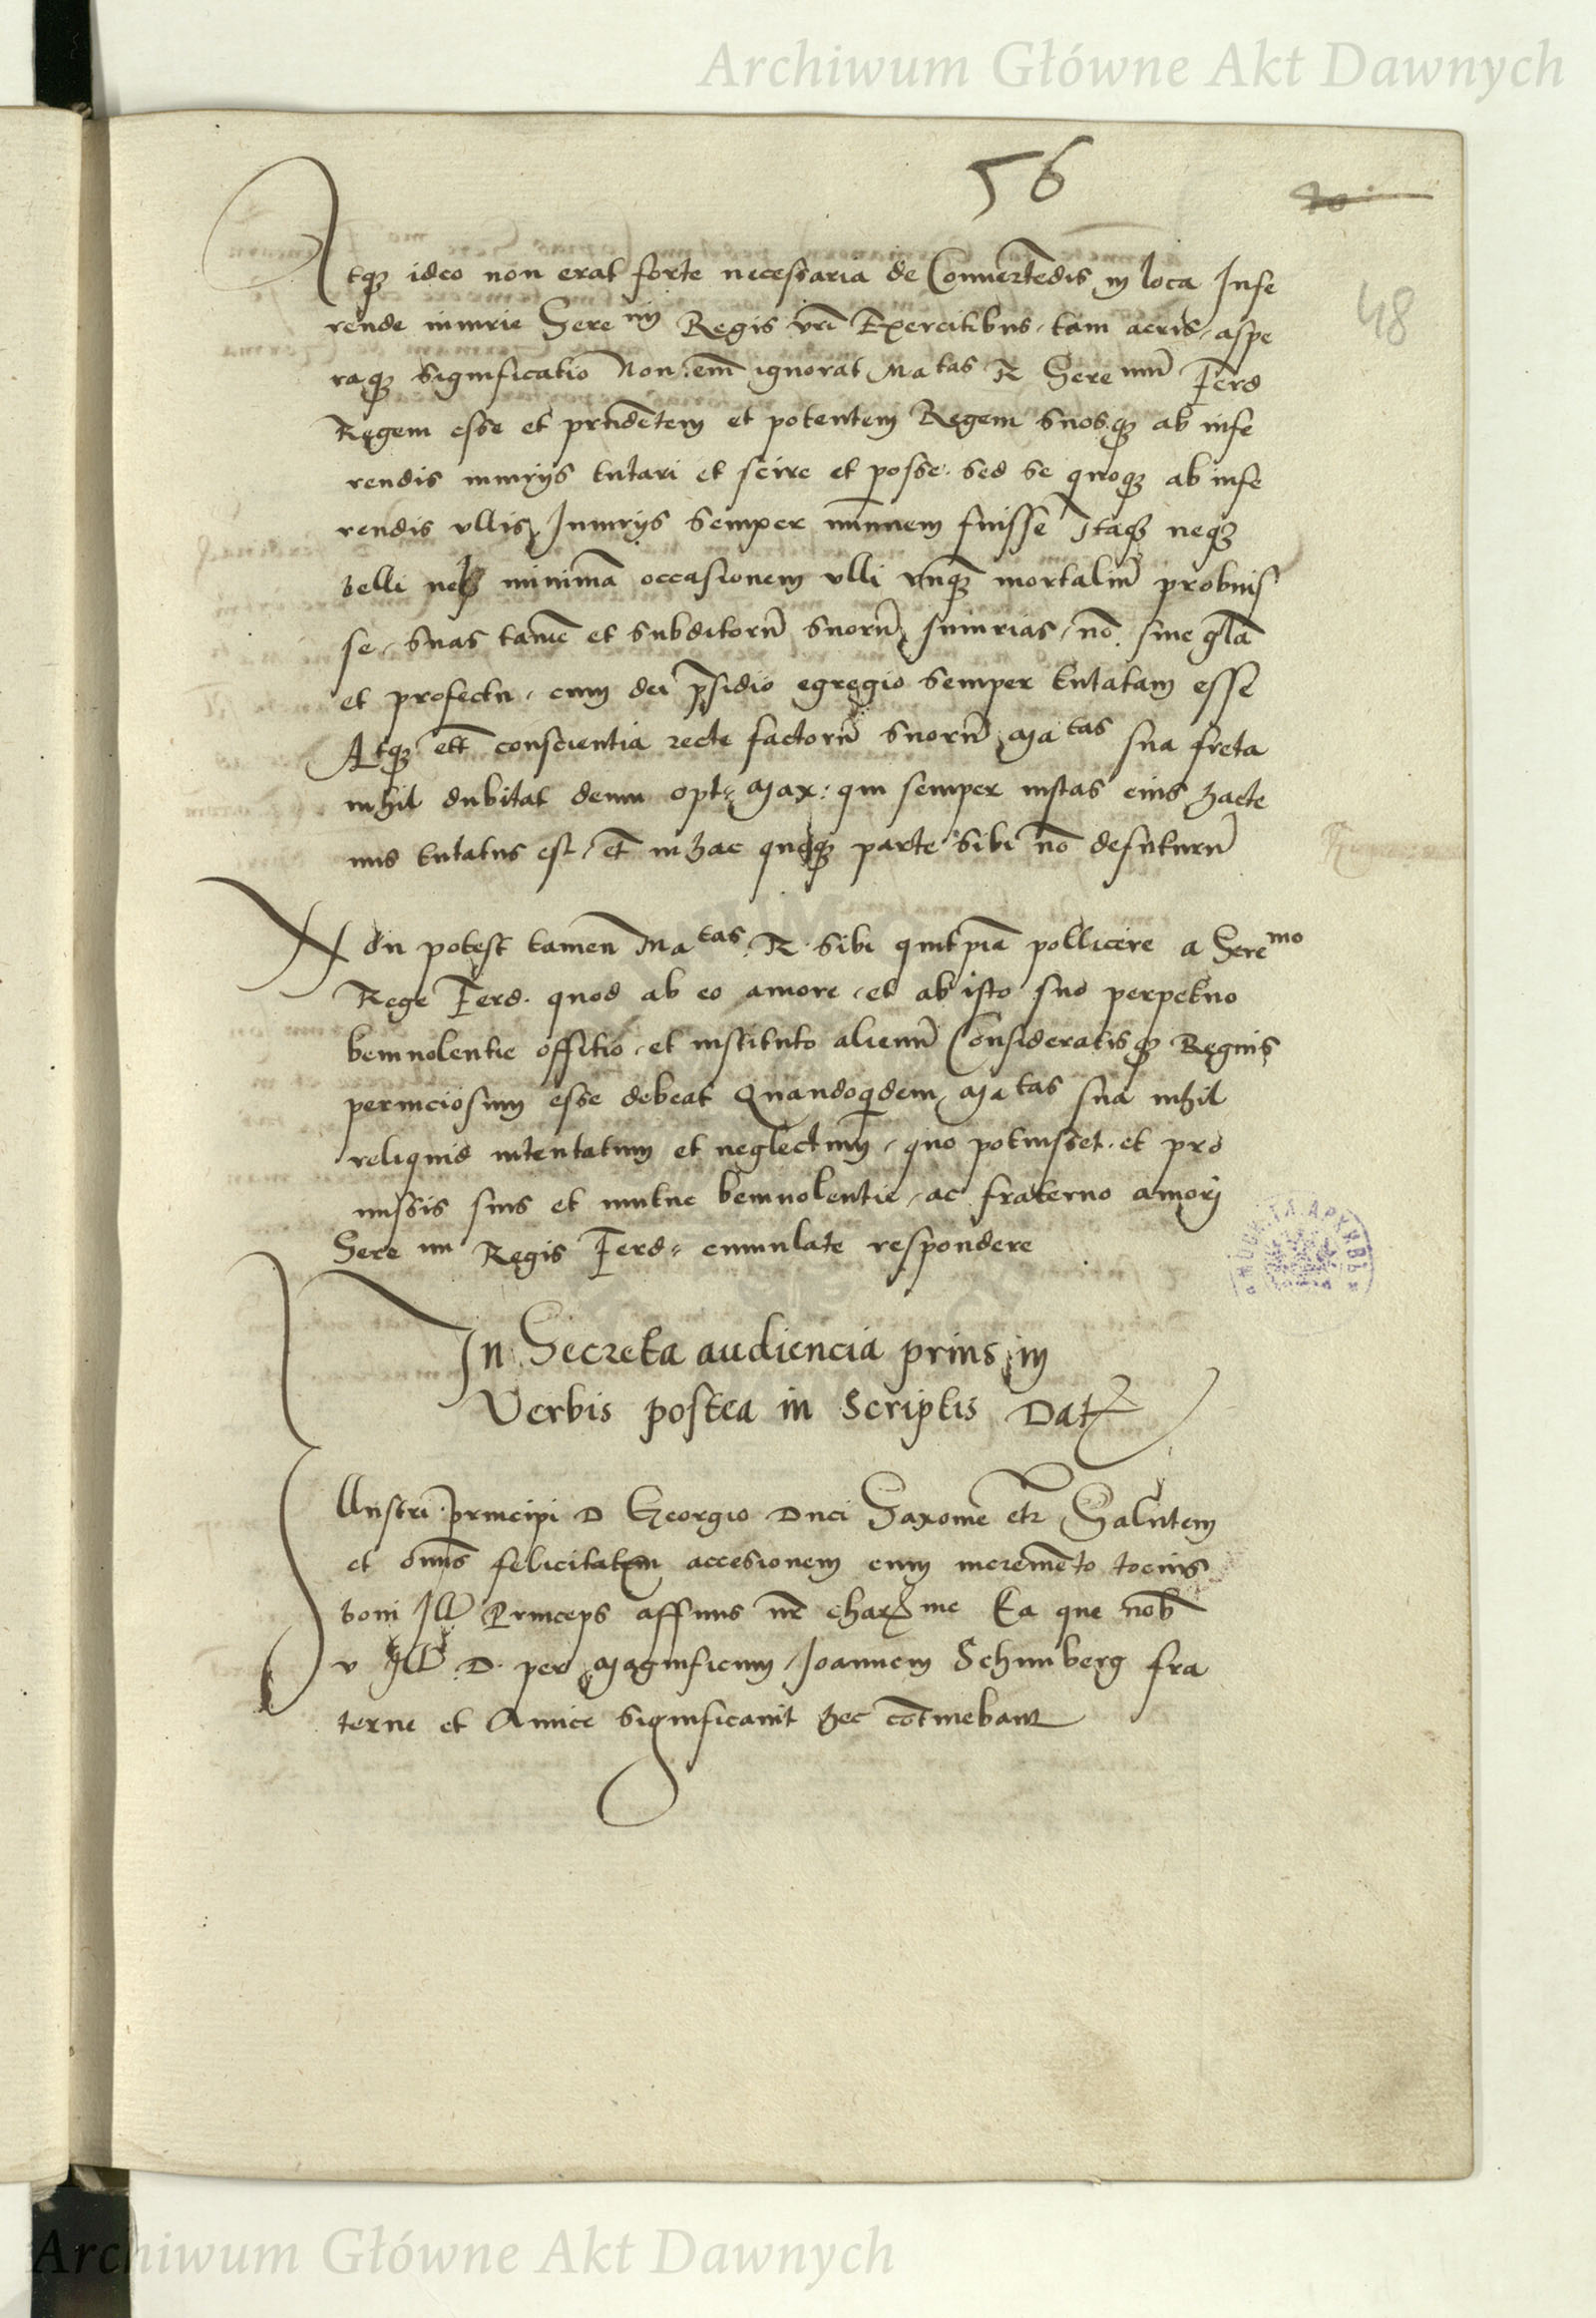 Archiwum Główne Akt Dawnych
56
48
Atqꝫ ideo non erat forte necessaria de Conuertẽdis in loca Infe
rende iniurie Sere mi Regis vr̃i Exercitibus, tam acris, aspe
raqꝫ significatio Non em̃ ignorat Ma tas R Sere mũ Ferd
Regem esse et prudẽtem et potentem Regem suosqꝫ ab infe
rendis iniurijs tutari et scire et posse. sed se quoqꝫ ab infe
rendis vllis Iniurijs semper immunem fuisse Itaqꝫ neqꝫ
belli neqꝫ minimã occasionem vlli vnqꝫ mortaliũ probuis
se, suas tamẽ et subditorũ suorũ iniurias, nõ sine gl̃a
et profectu, cum dei p̃sidio egregio semper tutatam esse
Atqꝫ ett̃ conscientia recte factorũ suorũ Ma tas sua freta
nihil dubitat deum opt: Max: qui semper iustas eius hacte
nus tutatus est, et in hac quoqꝫ parte sibi nõ defuturũ
Non potest tamen Ma tas R sibi quitpiã pollicere a Sere mo
Rege Ferd. quod ab eo amore, et ab isto suo perpetuo
beniuolentie offitio, et instituto alienũ Consideratisqꝫ Regnis
perniciosum esse debeat Quandoqidem Ma tas sua nihil
reliquid intentatum et neglectum, quo potuisset et pro
missis suis et mutue beniuolentie, ac fraterno amori
Sere mi Regis Ferd: cumulate respondere
In Secreta audiencia prius in
Verbis postea in Scriptis Dat
Illustri principi D Georgio Duci Saxonie etc Salutem
et om̃s felicitatem accesionem cum incremẽto tocius
boni Ill Princeps affinis nr̃ charme Ea que nob̃
v Ill D. per Magnificum Ioannem Schunberg fra
terne et Amice significauit hec cõtinebant
Archiwum Główne Akt Dawnych